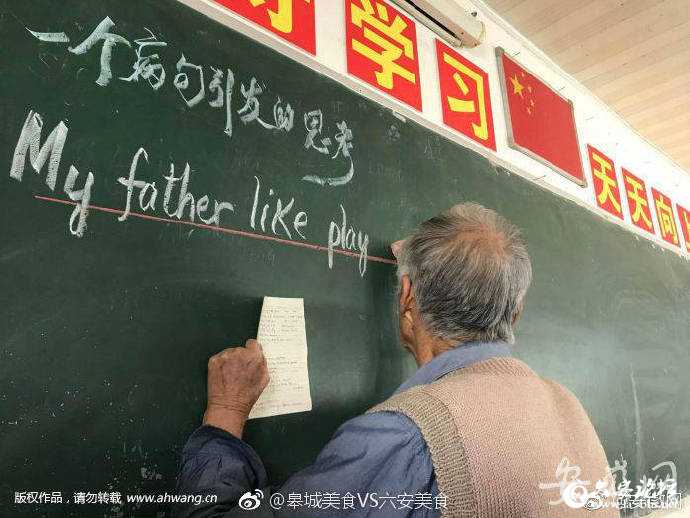 学习
天天向
一个病句引发的思考
My father like play
版权作品，请勿转载 www.ahwang.cn
@皋城美食VS六安美食